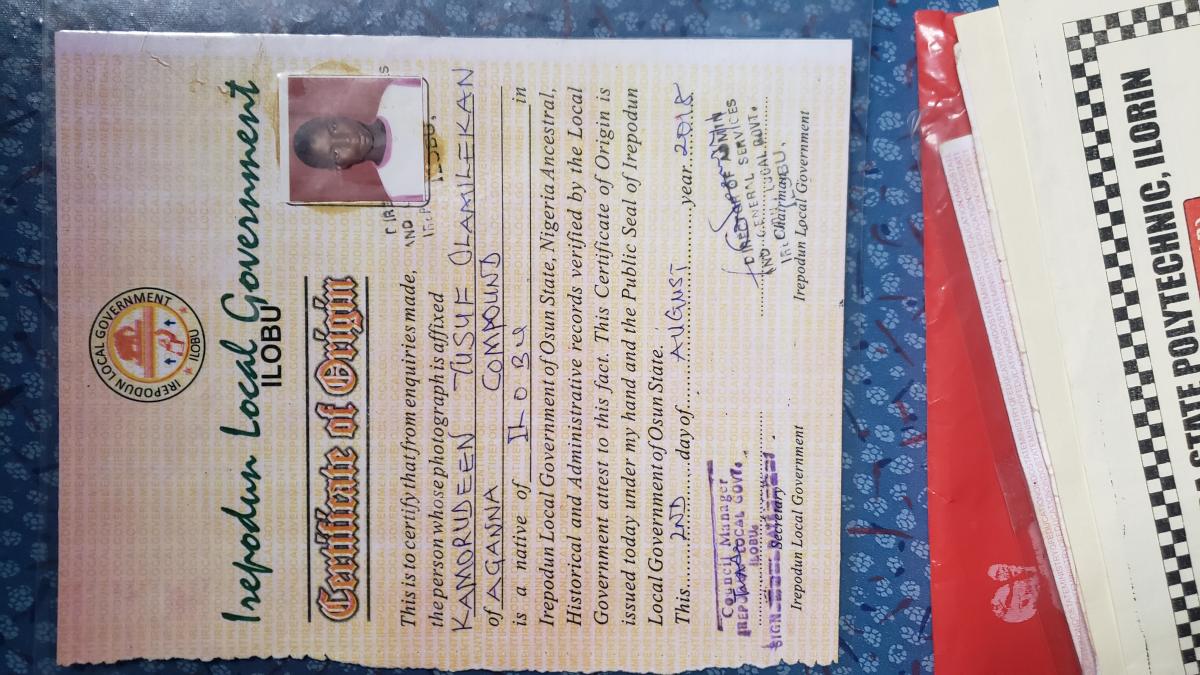 IREPODUN LOCAL GOVERNMENT
ILOBU
Irepodun Local Government
ILOBU
Certificate of Origin
This is to certify that from enquiries made,
the person whose photograph is affixed
KAMORUDEEN YUSUF OLAMILEKAN
of AGANNA COMPOUND
is a native of ILOBU in
Irepodun Local Government of Osun State, Nigeria Ancestral,
Historical and Administrative records verified by the Local
Government attest to this fact. This Certificate of Origin is
issued today under my hand and the Public Seal of Irepodun
Local Government of Osun State.
This 2ND day of AUGUST year 2018
Council Manager
LOCAL GOVT.
ILOBU.
Secretary
Irepodun Local Government
DIRECTOR OF ADMIN
AND GENERAL SERVICES
LOCAL GOVT.
ILOBU.
Chairman
Irepodun Local Government
STATE POLYTECHNIC, ILORIN